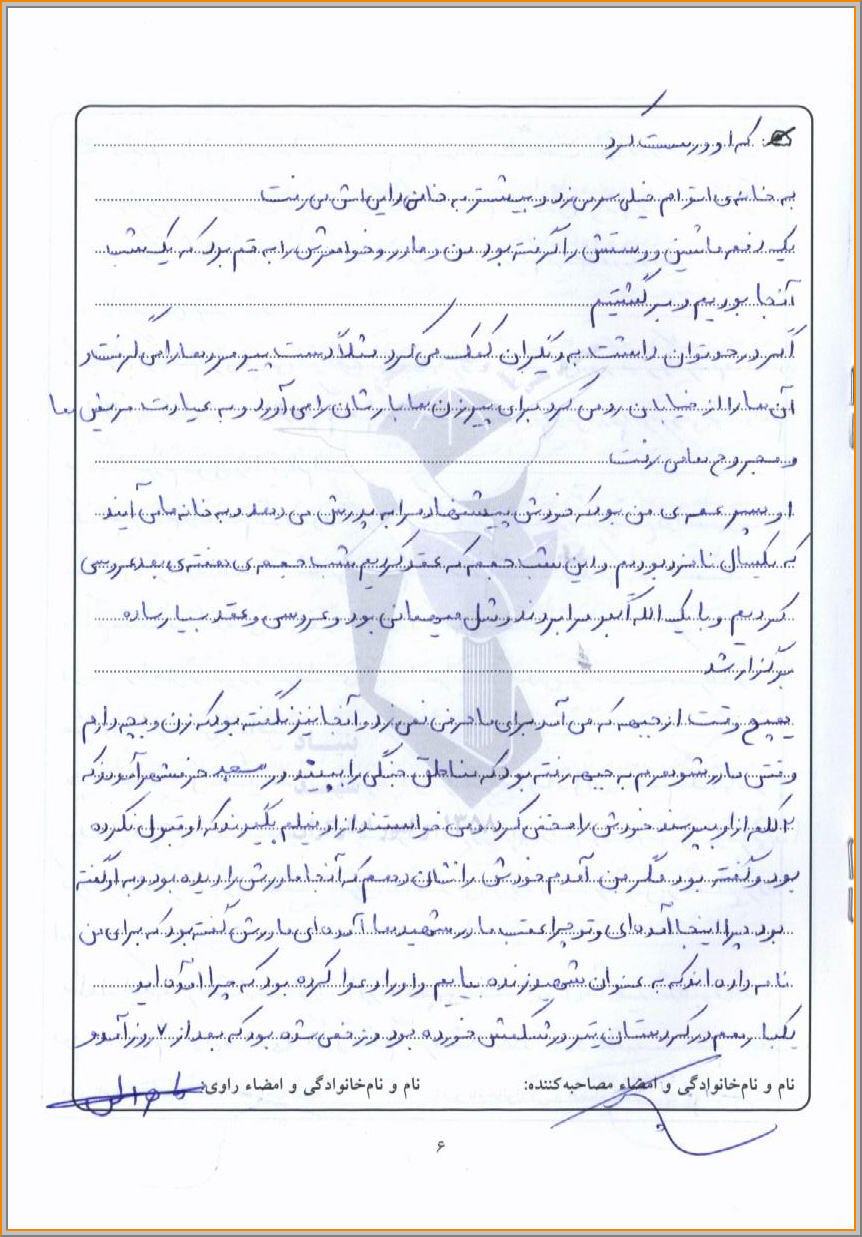 که او درست کرد
به خانه ی اقوام خیلی سر می زد و بیشتر به خانه ی دایی اش می رفت
یک دفعه ماشین دوستش را گرفته بود من و مادر و خواهرش را به قم برد که یک شب
آنجا بودیم و برگشتیم
اگر در حد توان داشت به دیگران کمک می کرد مثلاً دست پیرمردها را می گرفت و
آن ها را از خیابان رد می کرد برای پیرزن ها بارشان را می آورد و به عیادت مریض ها
و مجروح ها می رفت
او پسر عمه ی من بود که خودش پیشنهاد مرا به پدرش می دهد و به خانه ما می آیند
که یکسال نامزد بودیم و این شب جمعه که عقد کردیم شب جمعه ی هفته ی بعد عروسی
کردیم و با یک الله اکبر مرا بردند و مثل میهمانی بود و عروسی و عقد بسیار ساده
برگزار شد
هیچ وقت از جبهه که می آمد برای ما حرفی نمی زد و آنجا نیز نگفته بود که زن و بچه دارم
وقتی مادر شوهرم به جبهه رفته بود که مناطق جنگی را ببیند در مسجد خرمشهر آمدند که
۲ کلمه از او بپرسد خودش را مخفی کرد و می خواستند از او فیلم بگیرند که او قبول نکرده
بود و گفته بود مگر من آمدم خودش را نشان دهم که آنجا مادرش را دیده بود و به او گفته
بود چرا اینجا آمده ای و تو چرا عقب مادر شهیدها آمده ای مادرش گفته بود که برای من
نامه داده اند که به عنوان شهید زنده بیایم و او را دعوا کرده بود که چرا آمده اید
یکبار هم در کردستان تیر در شکمش خورده بود و زخمی شده بود که بعد از ۷ روز آمد و
نام و نام‌خانوادگی و امضاء مصاحبه‌کننده: نام و نام‌خانوادگی و امضاء راوی:
۶